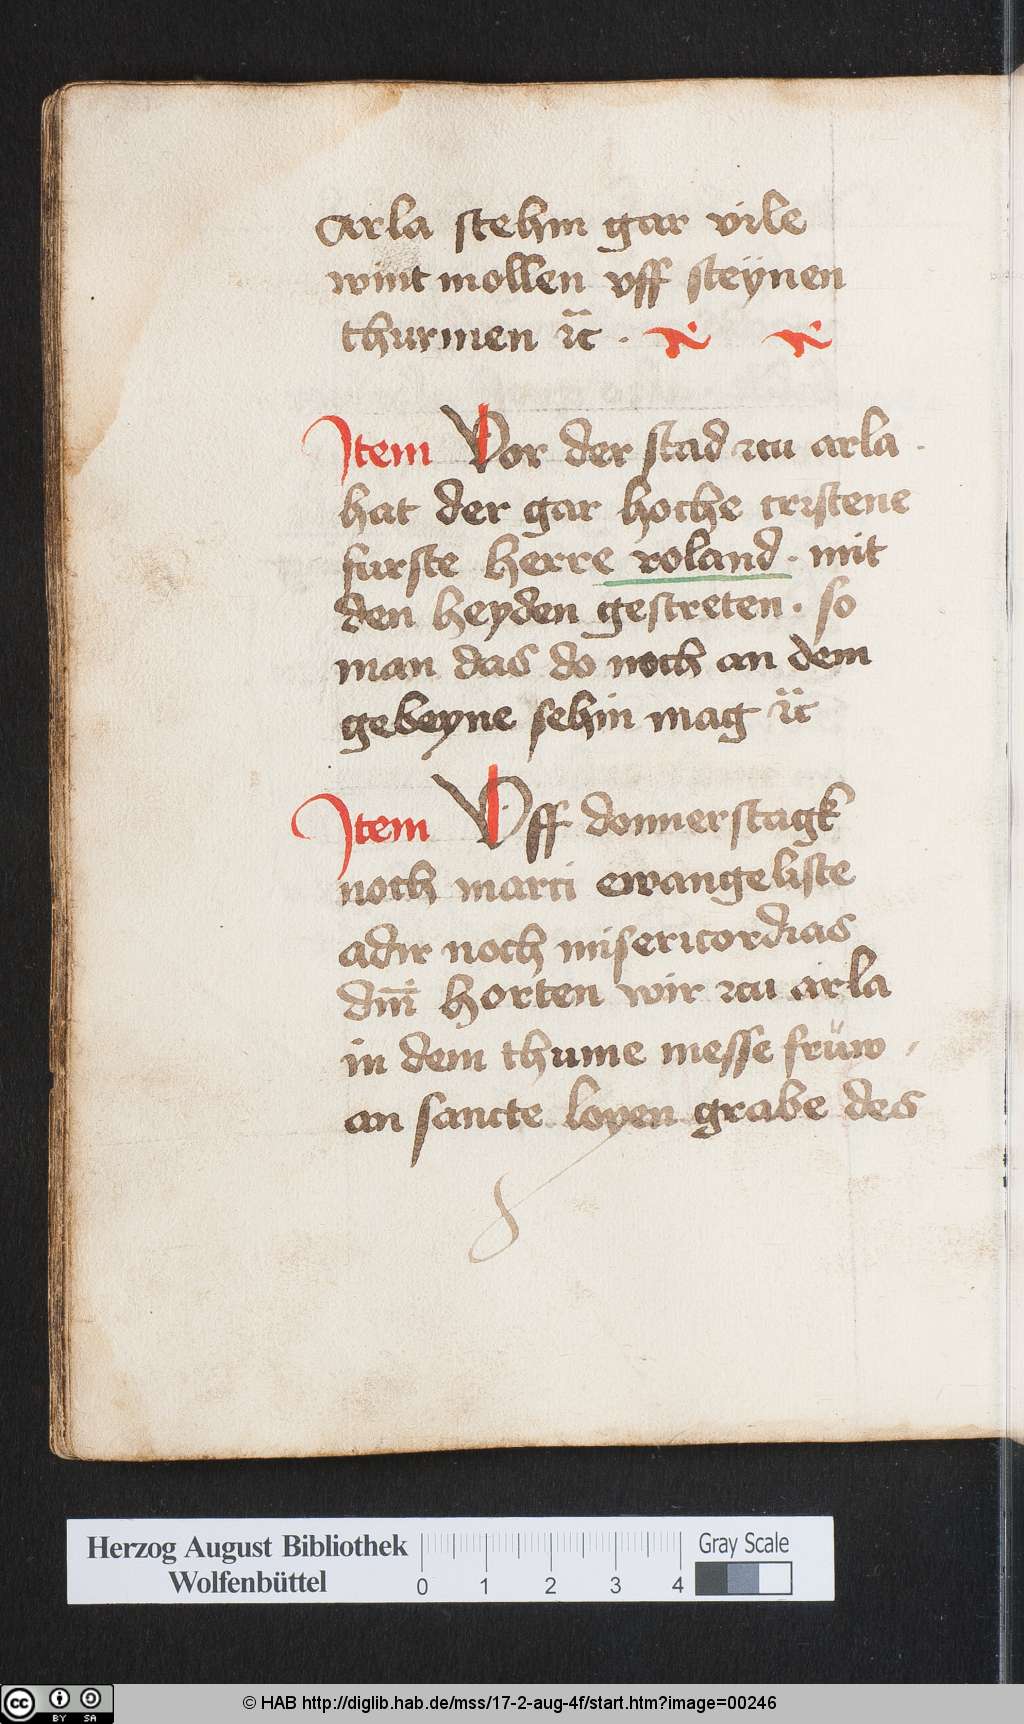 Arla stehin gar vile
wint mollen vff steÿnen
thurmen ꝛc̃ .
Item Vor der stad zcu arla .
hat der gar hoche cristene
furste herre roland . mit
den heyden gestreten . so
man das do noch an dem
gebeyne sehin mag ꝛc̃
Item Vff donnerstagk
noch marci ewangeliste
adir noch misericordias
dm̄ horten wir zcu arla
in dem thume messe früw ,
an sancte loyen grabe des
Herzog August Bibliothek
Wolfenbüttel
0 1 2 3 4
Gray Scale
cc BY SA
© HAB http://diglib.hab.de/mss/17-2-aug-4f/start.htm?image=00246